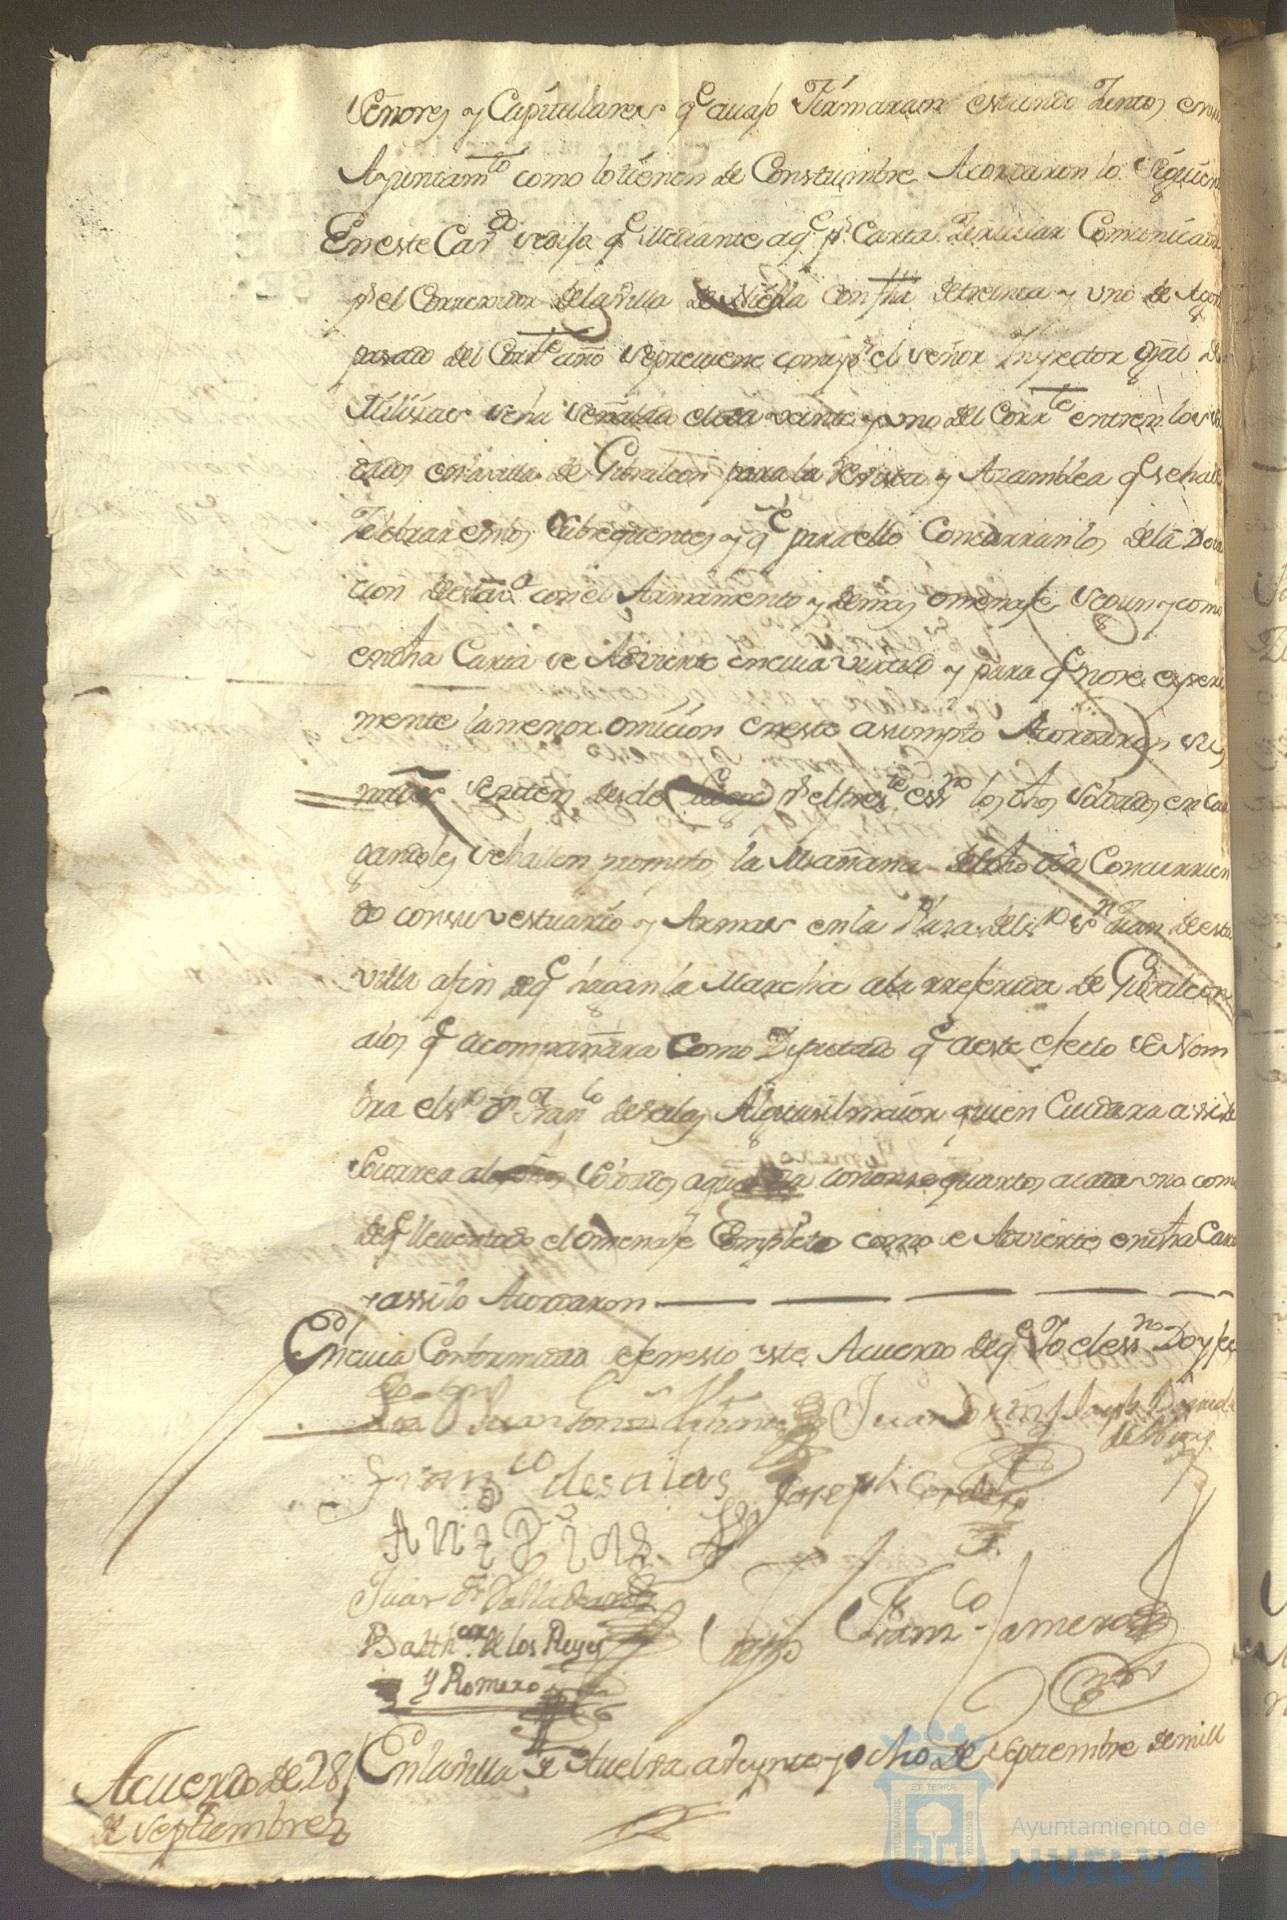 Señores y Capitulares q.e avajo firmaron estando juntos en su
Ayuntam.to como lo tienen de Constumbre Acordaron lo siguien
En este Cav.do se dijo q.e mediante a q.e p.r Carta circular Comunicada
p.r el Correxidor de la villa de Niebla con fha de treinta y uno de Agos
pasado del Corr.te año se previene como p.r el señor Inspector Gral de
Milisias se ha señalado el dia veinte y uno del Corr.te entren los sol
dados en la villa de Gibraleon para la revista y Azamblea q.e se ha de
Zelebrar en los subsequentes y q.e para ello Concurran los de la Dota
cion de esta v.a con el Armamento y demas omenaje segun y como
en dha Carta se Advierte en cuia virtud y para q.e no se esperi
mente la menor omision en este assumpto Acordaron sus
mrds se siten desde luego p.r el pres.te ess.no los dhos soldados encar
gandoles se hallen promptos la Mañana del dho dia Concurrien
do con su vestuario y Armas en la Plaza del s.r s.n Juan de esta
villa a fin de q.e hagan la Marcha a la rreferida de Gibraleon
a los q.e acompañara como Diputado q.e a este efecto se Nom
bra el s.r d.n Fran.co de Salas Alguasil maior quien Cuidara assi de
Socorrer a los dhos soldados aquel dia con onse quartos a cada uno como
de q.e lleven todo el omenaje Completo como se Advierte en dha Carta
y assi lo Acordaron
En cuia Conformidad se fenesio este Acuerdo de q.e Yo el ess.no Doy fee
Juan
Fran.co de salas Joseph Cordero
Juan Valladares
Balth.ar de los Reyes
y Romero
Fran.co
Acuerdo de 28
de septiembre
En la villa de Huelva a veynte y ocho de septiembre de mill
Ayuntamiento de
HUELVA